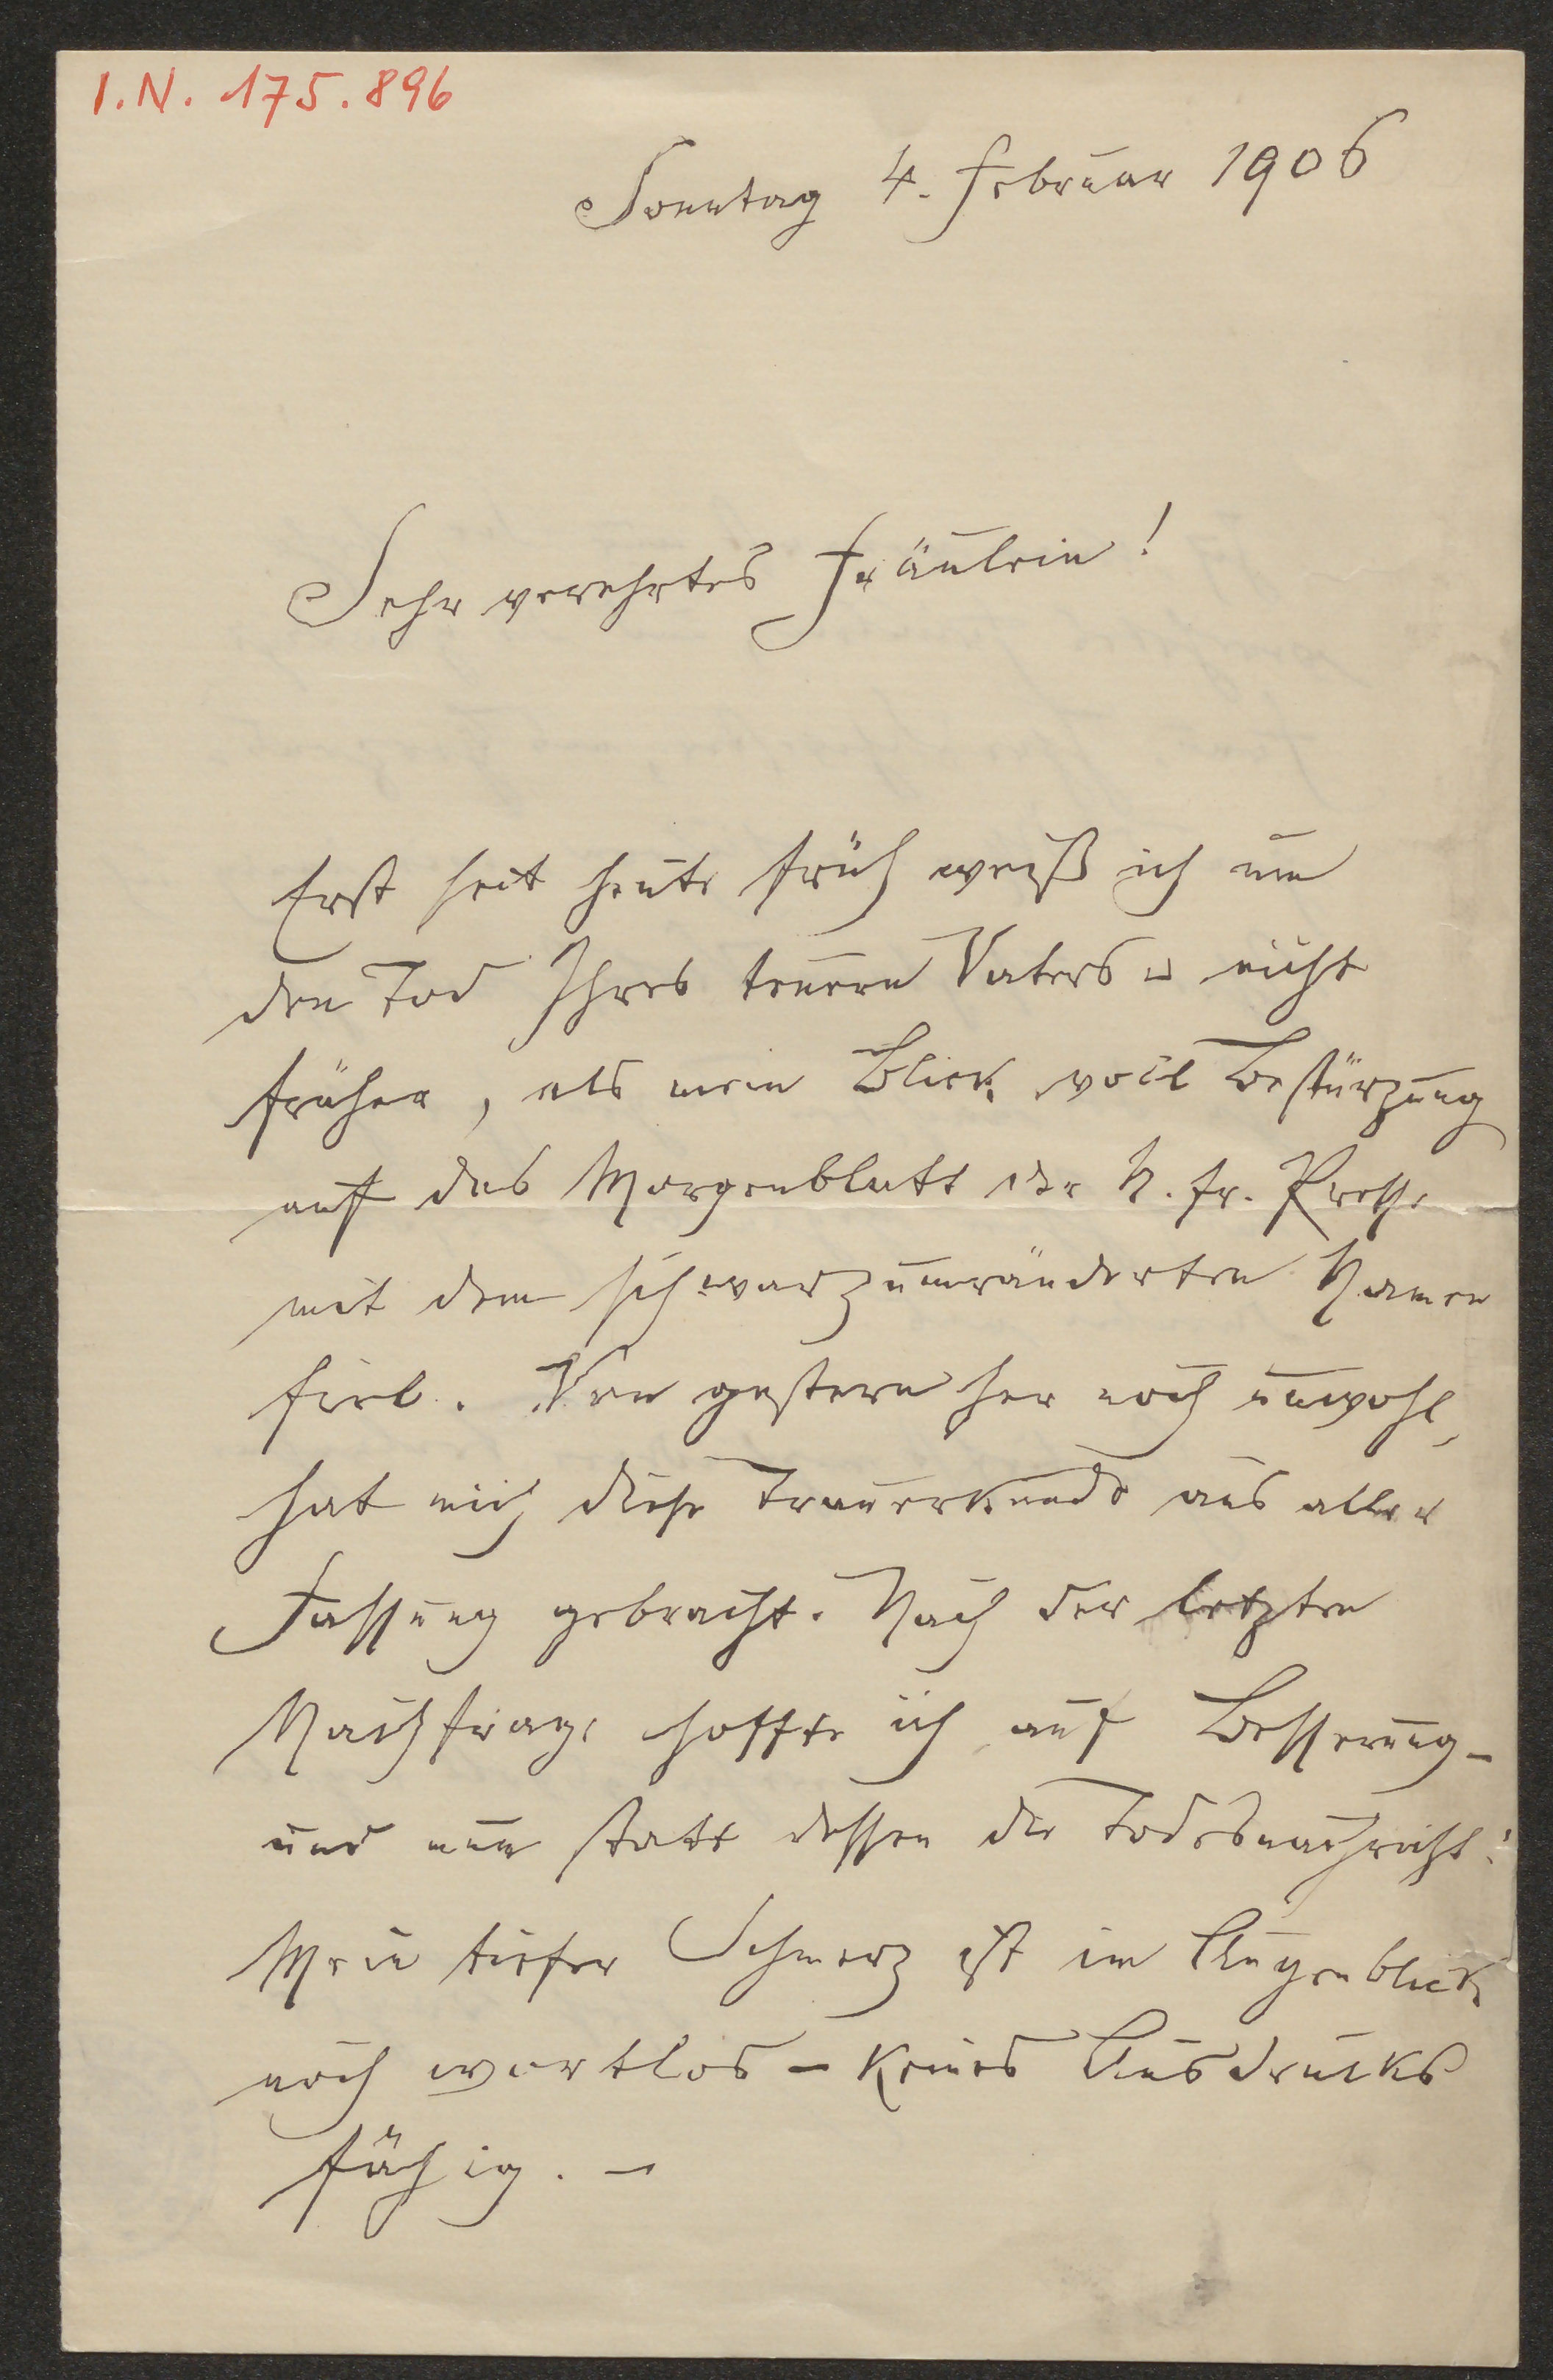 I.N. 175.896
Sonntag 4. Februar 1906
Sehr verehrtes Fräulein!
Erst seit heute früh weiß ich um
den Tod Ihres teuern Vaters u nicht
früher, als mein Blick voll Bestürzung
auf das Morgenblatt der N. Fr. Presse
mit dem schwarzumränderten Namen
fiel. Von gestern her noch unwohl,
hat mich diese Trauerkunde aus aller
Fassung gebracht. Nach der letzten
Nachfrage hoffte ich auf Besserung –
und nun statt dessen die Todesnachricht!
Mein tiefer Schmerz ist im Augenblick
noch wortlos – keines Ausdrucks
fähig. –